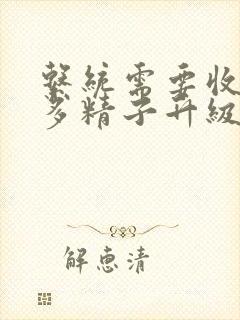 繫統需要收
多精子升級
解惠清